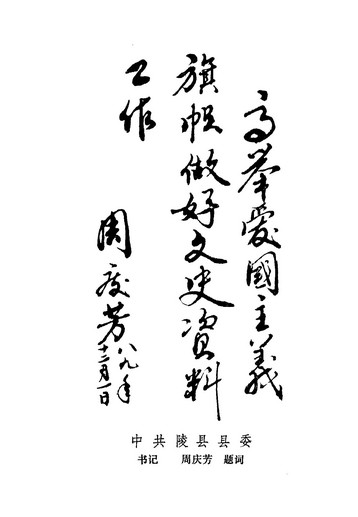 高举爱國主義
旗帜做好文史资料
工作
周庆芳
八九年
十二月一日
中共陵县县委
书记 周庆芳 题词